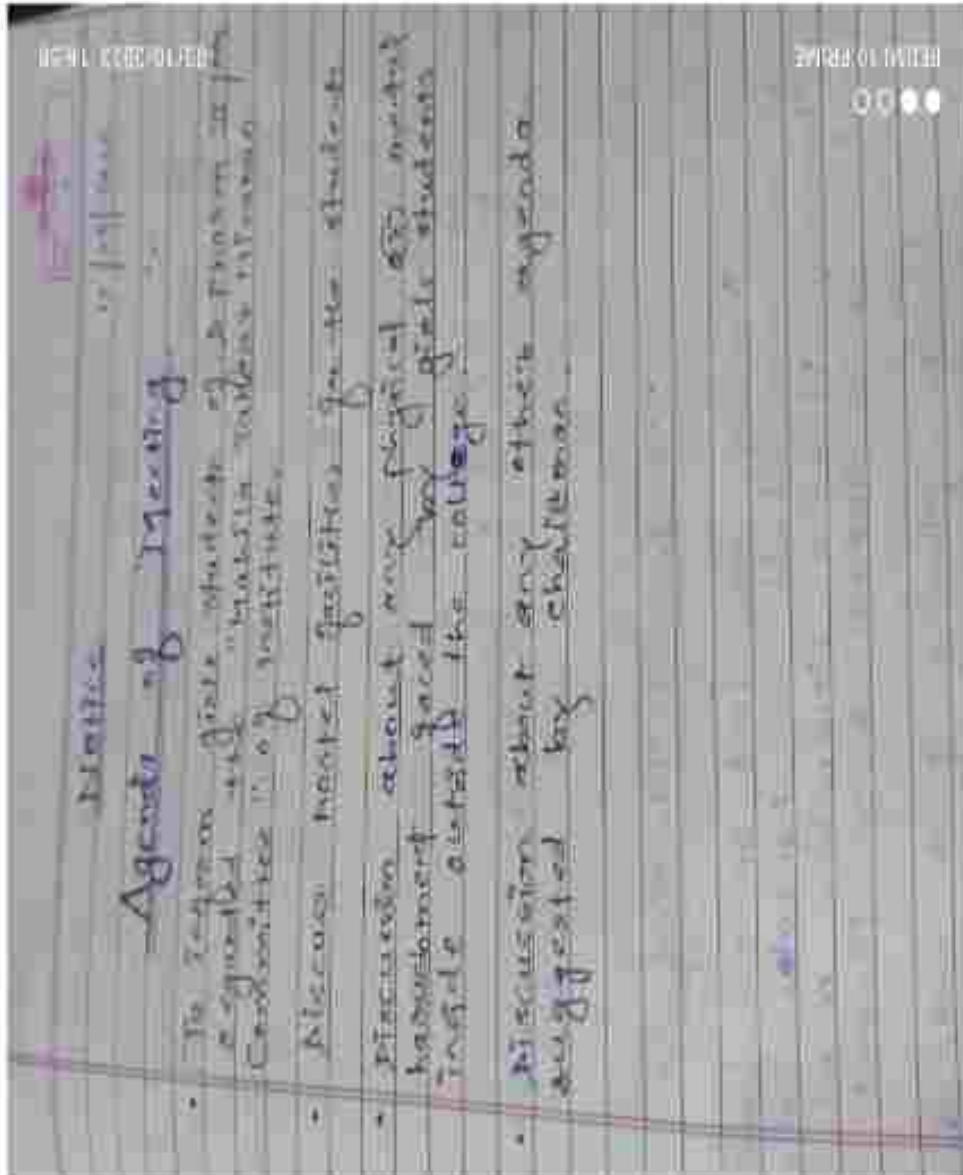 Notice
Agenda of Meeting
• To Inform girls students of D Pharm II yr
Committee" of institute.
• Discuss hostel facilities for the students
• Discussion about any physical or mental
harassment faced by girls students
inside outside the college.
• Discussion about any other agenda
suggested by chairman.
REDMI 10 PRIME